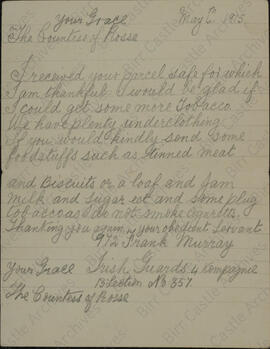 Your Grace May 6 1915.
The Countess of Rosse
I received your parcel safe for which
I am thankful I would be glad if
I could get some more Tobacco.
We have plenty underclothing.
If you would kindly send some
foodstuffs such as tinned meat
and Biscuits or a loaf and Jam
Milk and Sugar ect and some plug
tobacco as I do not smoke cigaretts.
Thanking you again your obedient Servant
972 Frank Murray
Your Grace Irish Guards 4 Kompagnie
13 Section No 357
The Countess of Rosse